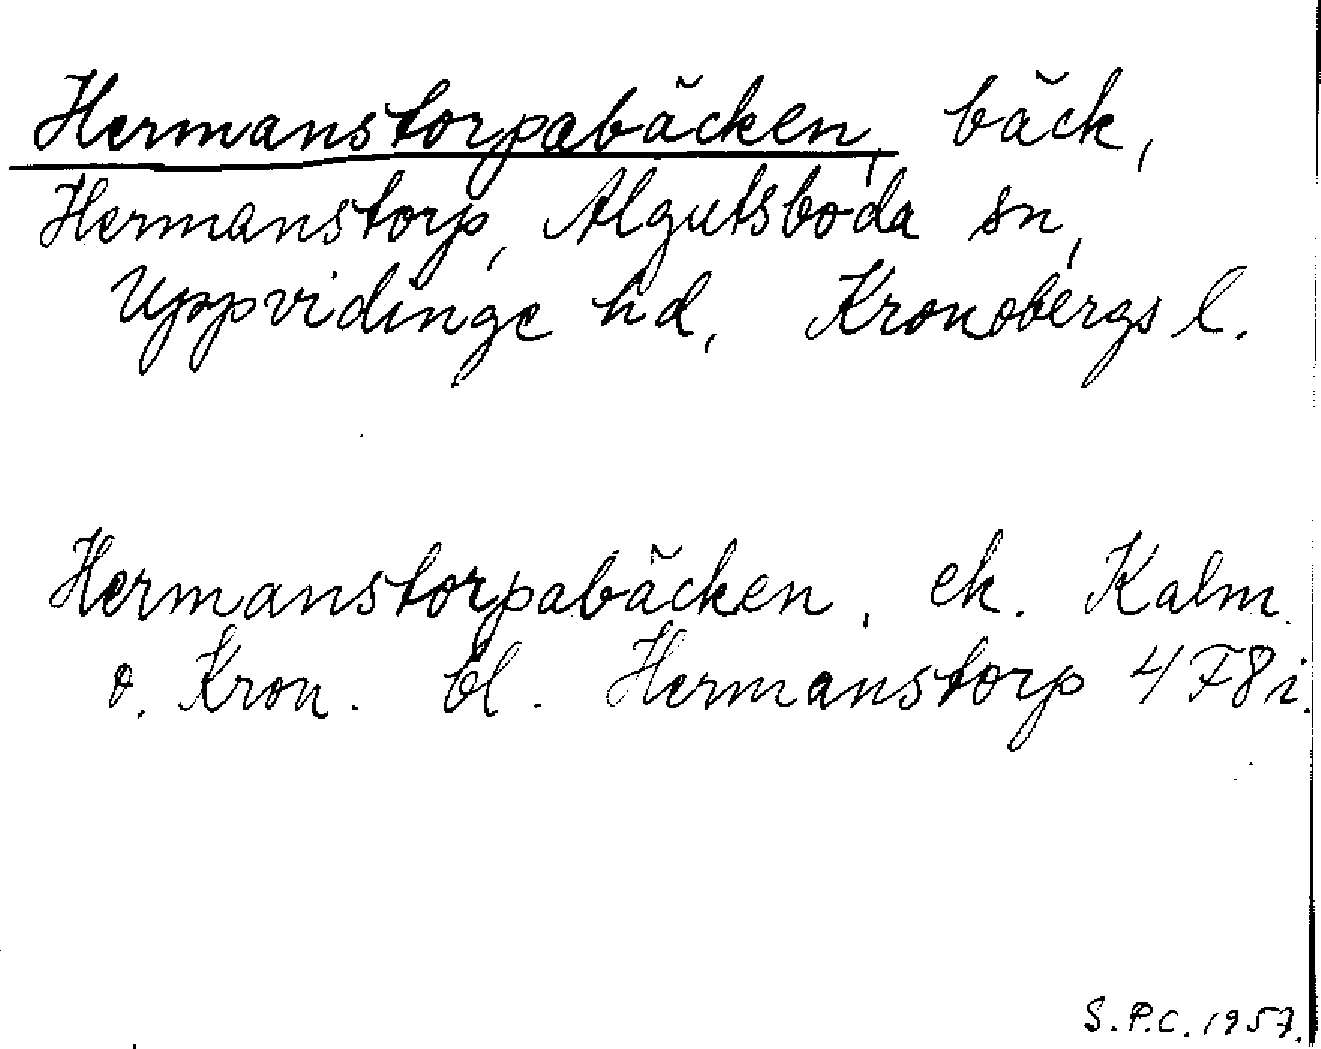 Hermanstorpabäcken, bäck,
Hermanstorp, Algutsboda sn,
Uppvidinge hd, Kronobergs l.
Hermanstorpabäcken, ek. Kalm.
o. Kron. bl. Hermanstorp 4F8i.
S.P.C. 1957.